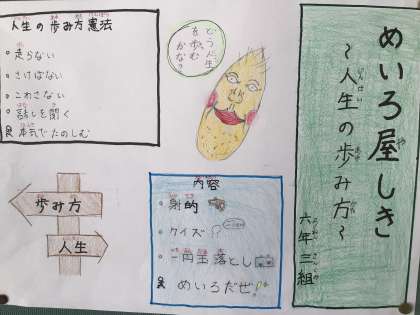 めいろ屋しき
～人生の歩み方～
六年三組
どう人生
を歩む
かな？
人生の歩み方憲法
走らない
さけばない
こわさない
話しを聞く
本気でたのしむ
歩み方
人生
内容
射的
クイズ
一円玉落とし
めいろだぜ！